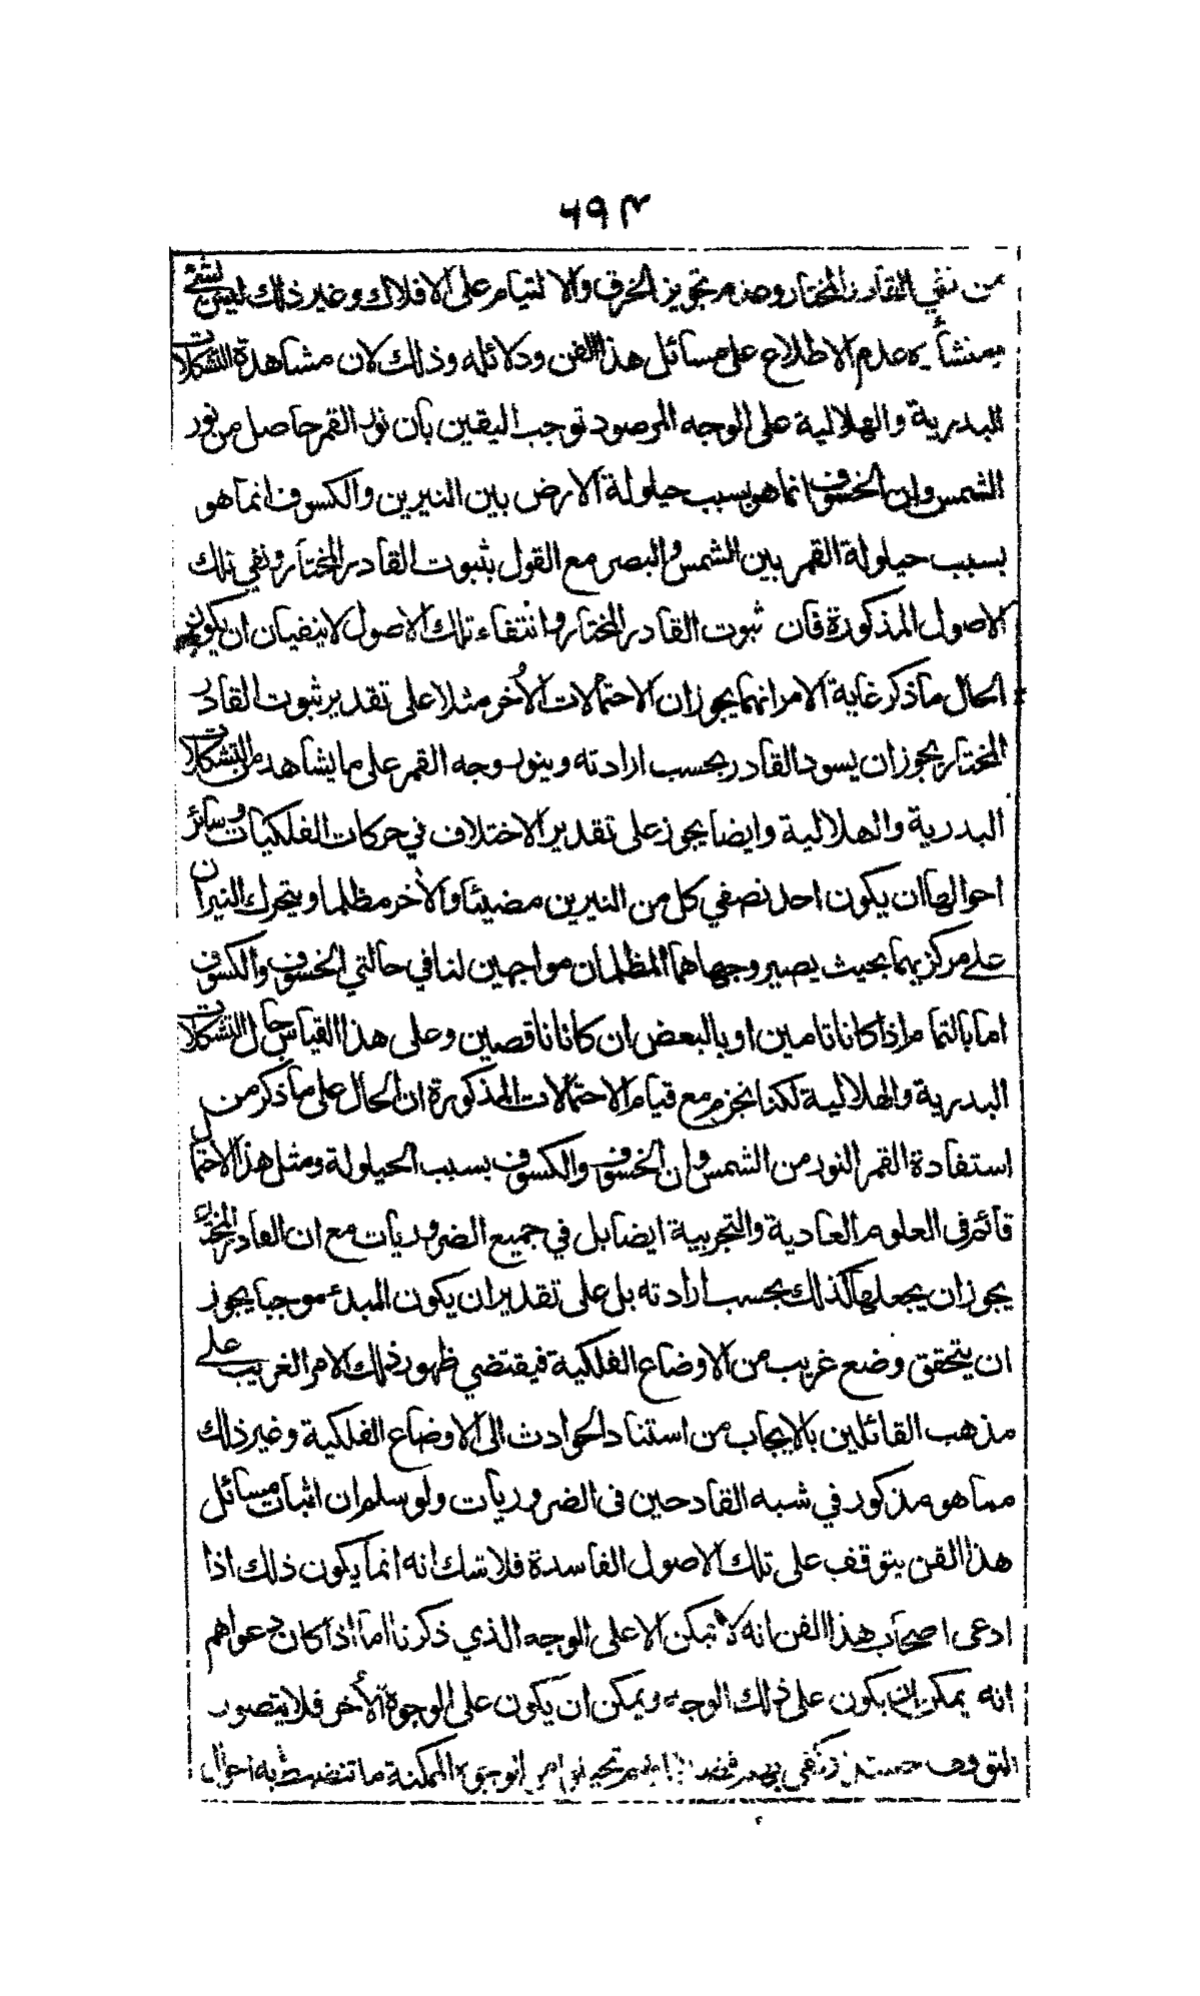 ٦٩٣
من نفي القادر المختار وعدم تجويز الخرق والالتيام على الافلاك وغير ذلك ليس بشئ
منشأه عدم الاطلاع على مسائل هذا الفن ودلائله وذلك لان مشاهدة التشكلات
البدرية والهلالية على الوجه المرصود توجب اليقين بان نور القمر حاصل من نور
الشمس وان الخسوف انما هو بسبب حيلولة الارض بين النيرين والكسوف انما هو
بسبب حيلولة القمر بين الشمس والبصر مع القول بثبوت القادر المختار ونفي تلك
الاصول المذكورة فان ثبوت القادر المختار وانتفاء تلك الاصول لا ينفيان ان يكون
الحال ما ذكر غاية الامر انهما يجوزان الاحتمالات الأخر مثلا على تقدير ثبوت القادر
المختار يجوز ان يسود القادر بحسب ارادته وينور وجه القمر على ما يشاهد من التشكلات
البدرية والهلالية وايضا يجوز على تقدير الاختلاف في حركات الفلكيات وسائر
احوالها ان يكون احد نصفي كل من النيرين مضيئا والأخر مظلما ويتحرك النيران
على مركزيهما بحيث يصير وجهاهما المظلمان مواجهين لنا في حالتي الخسوف والكسوف
اما بالتمام اذا كانا تامين او بالبعض ان كانا ناقصين وعلى هذا القياس حال التشكلات
البدرية والهلالية لكنا نجزم مع قيام الاحتمالات المذكورة ان الحال على ما ذكر من
استفادة القمر النور من الشمس وان الخسوف والكسوف بسبب الحيلولة ومثل هذا الاحتمال
قائم فى العلوم العادية والتجربية ايضا بل في جميع الضروريات مع ان القادر المختار
يجوز ان يجعلها كذلك بحسب ارادته بل على تقدير ان يكون المبدء موجبا يجوز
ان يتحقق وضع غريب من الاوضاع الفلكية فيقتضي ظهور ذلك الامر الغريب على
مذهب القائلين بالايجاب من استناد الحوادث الى الاوضاع الفلكية وغير ذلك
مما هو مذكور في شبه القادحين فى الضروريات ولو سلم ان اثبات مسائل
هذا الفن يتوقف على تلك الاصول الفاسدة فلا شك انه انما يكون ذلك اذا
ادعى اصحاب هذا الفن انه لا يمكن الا على الوجه الذي ذكرنا اما اذا كان دعواهم
انه يمكن ان يكون على ذلك الوجه ويمكن ان يكون على الوجوه الأخر فلا يتصور
التوقف الممكنة ما تنضبط به احوال